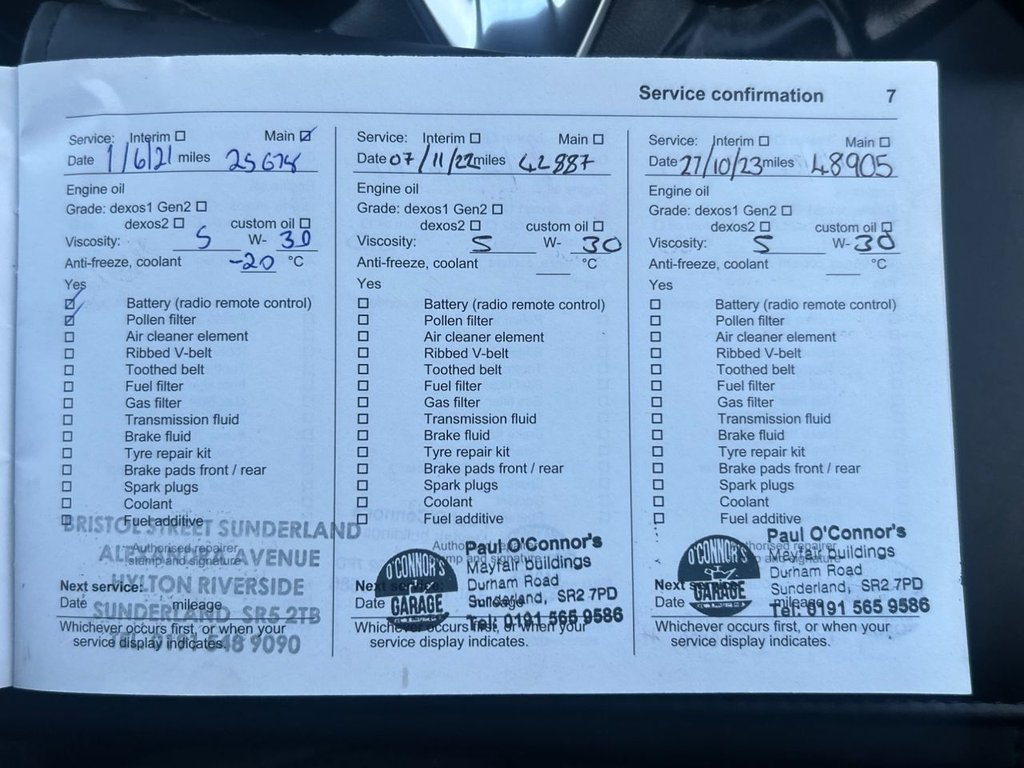 Service confirmation 7
Service: Interim ☐ Main ☑
Date 1/6/21 miles 25678
Engine oil
Grade: dexos1 Gen2 ☐
dexos2 ☐ custom oil ☐
Viscosity: 5 W- 30
Anti-freeze, coolant -20 °C
Yes
☑ Battery (radio remote control)
☑ Pollen filter
☐ Air cleaner element
☐ Ribbed V-belt
☐ Toothed belt
☐ Fuel filter
☐ Gas filter
☐ Transmission fluid
☐ Brake fluid
☐ Tyre repair kit
☐ Brake pads front / rear
☐ Spark plugs
☐ Coolant
☐ Fuel additive
BRISTOL STREET SUNDERLAND
Authorised repairer
stamp and signature
ALEXANDRA AVENUE
HYLTON RIVERSIDE
Next service:
Date mileage
SUNDERLAND SR5 2TB
Whichever occurs first, or when your
service display indicates.
Tel: 0191 548 9090
Service: Interim ☐ Main ☐
Date 07/11/22 miles 42887
Engine oil
Grade: dexos1 Gen2 ☐
dexos2 ☐ custom oil ☐
Viscosity: 5 W- 30
Anti-freeze, coolant °C
Yes
☐ Battery (radio remote control)
☐ Pollen filter
☐ Air cleaner element
☐ Ribbed V-belt
☐ Toothed belt
☐ Fuel filter
☐ Gas filter
☐ Transmission fluid
☐ Brake fluid
☐ Tyre repair kit
☐ Brake pads front / rear
☐ Spark plugs
☐ Coolant
☐ Fuel additive
O'CONNOR'S
GARAGE
Paul O'Connor's
Mayfair buildings
Durham Road
Sunderland, SR2 7PD
Tel: 0191 565 9586
Next service:
Date mileage
Whichever occurs first, or when your
service display indicates.
Service: Interim ☐ Main ☐
Date 27/10/23 miles 48905
Engine oil
Grade: dexos1 Gen2 ☐
dexos2 ☐ custom oil ☐
Viscosity: 5 W- 30
Anti-freeze, coolant °C
Yes
☐ Battery (radio remote control)
☐ Pollen filter
☐ Air cleaner element
☐ Ribbed V-belt
☐ Toothed belt
☐ Fuel filter
☐ Gas filter
☐ Transmission fluid
☐ Brake fluid
☐ Tyre repair kit
☐ Brake pads front / rear
☐ Spark plugs
☐ Coolant
☐ Fuel additive
O'CONNOR'S
GARAGE
Paul O'Connor's
Mayfair buildings
Durham Road
Sunderland, SR2 7PD
Tel: 0191 565 9586
Next service:
Date mileage
Whichever occurs first, or when your
service display indicates.